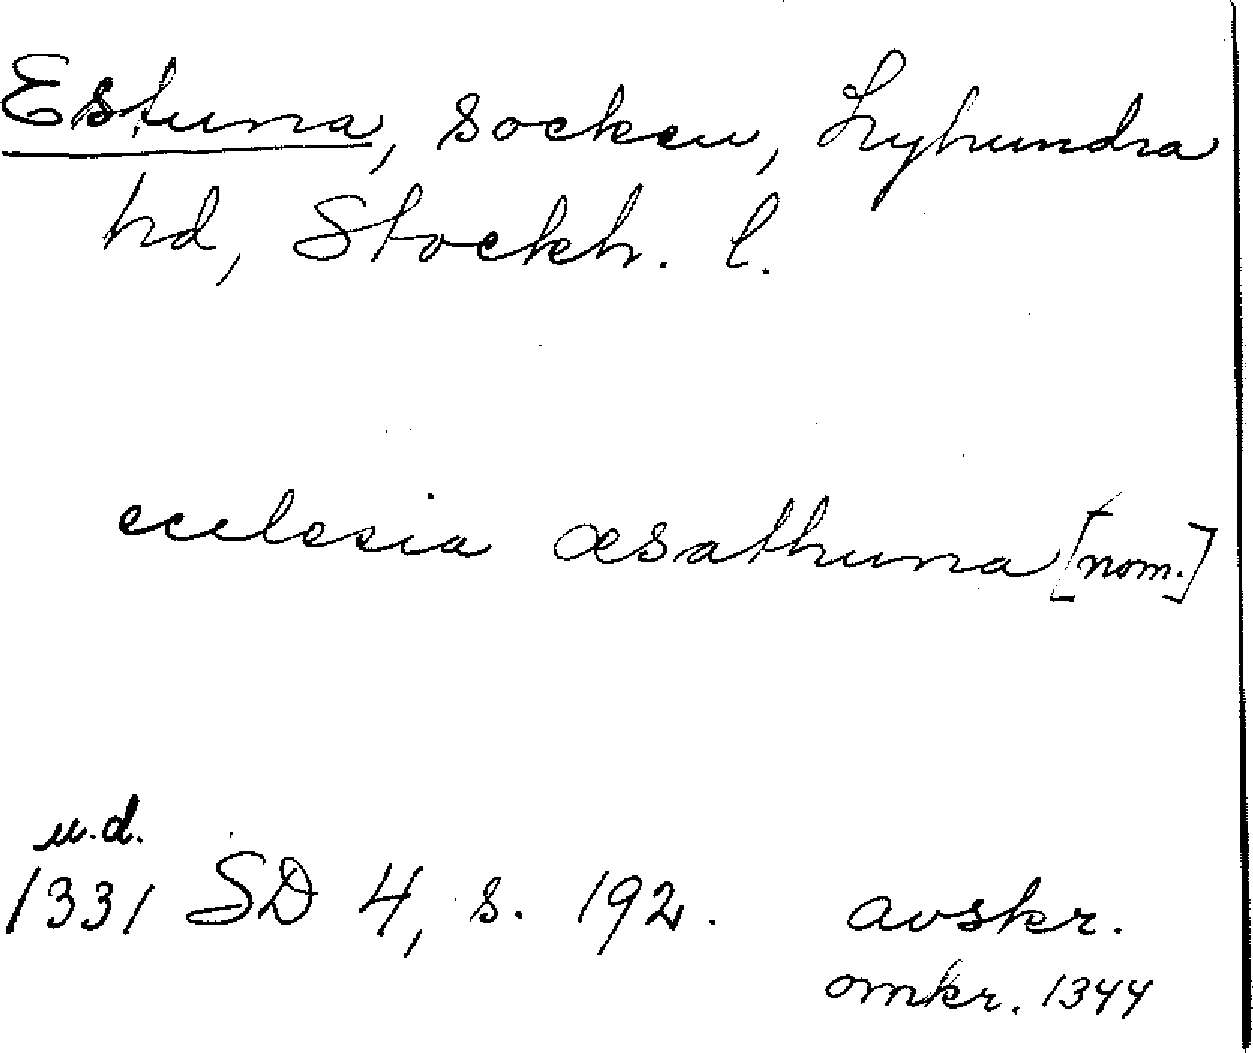 Estuna, socken, Lyhundra
hd, Stockh. l.
ecclesia æsathuna [nom.]
u.d.
1331 SD 4, s. 192. avskr.
omkr. 1344